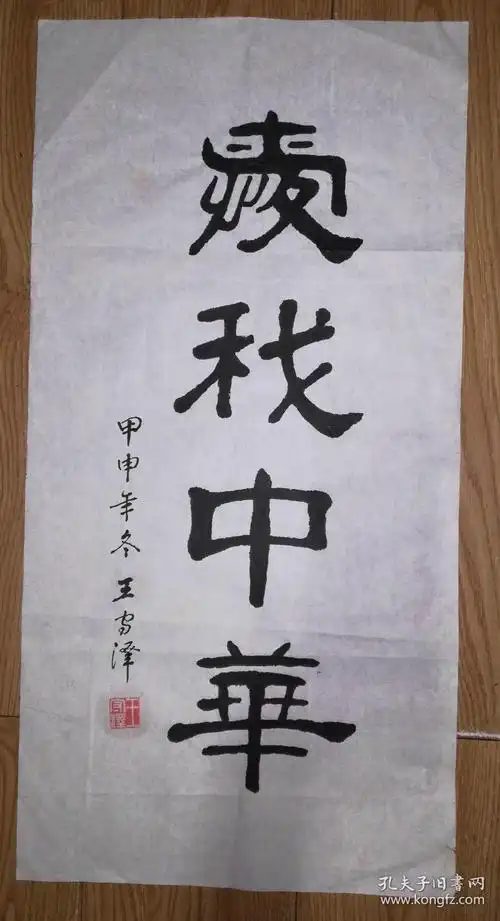 愛我中華
甲申年冬 王守澤
孔夫子旧书网
www.kongfz.com